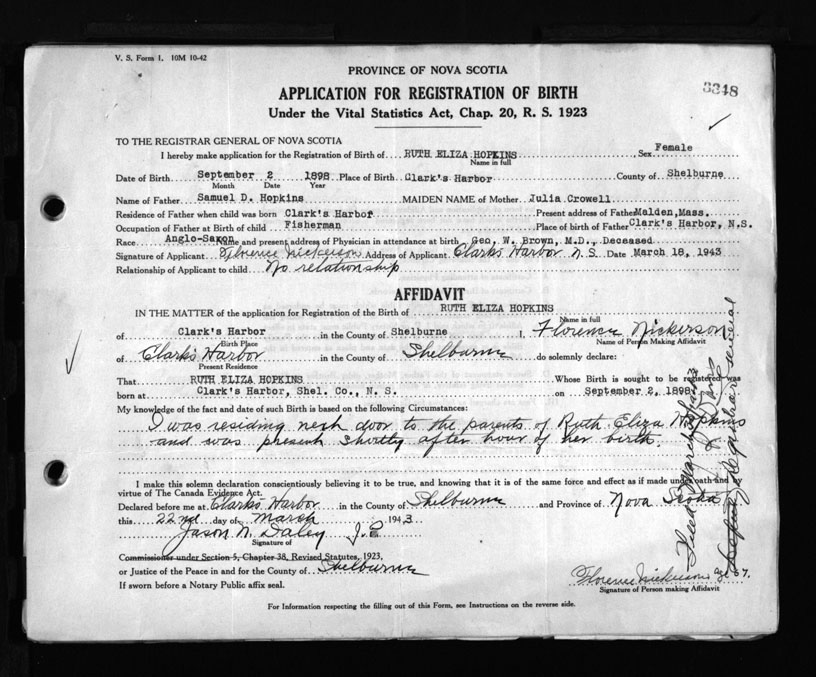 V. S. Form 1. 10M 10-42
PROVINCE OF NOVA SCOTIA
3348
APPLICATION FOR REGISTRATION OF BIRTH
Under the Vital Statistics Act, Chap. 20, R. S. 1923
TO THE REGISTRAR GENERAL OF NOVA SCOTIA
I hereby make application for the Registration of Birth of RUTH ELIZA HOPKINS, Sex Female
Name in full
Date of Birth September 2 1898 Place of Birth Clark's Harbor County of Shelburne
Month Date Year
Name of Father Samuel D. Hopkins MAIDEN NAME of Mother Julia Crowell
Residence of Father when child was born Clark's Harbor Present address of Father Malden, Mass.
Occupation of Father at Birth of child Fisherman Place of birth of Father Clark's Harbor, N.S.
Race Anglo-Saxon Name and present address of Physician in attendance at birth Geo. W. Brown, M.D., Deceased
Signature of Applicant Florence Nickerson Address of Applicant Clark's Harbor N.S. Date March 18, 1943
Relationship of Applicant to child No relationship
AFFIDAVIT
IN THE MATTER of the application for Registration of the Birth of RUTH ELIZA HOPKINS
Name in full
of Clark's Harbor in the County of Shelburne I, Florence Nickerson
Birth Place Name of Person Making Affidavit
of Clark's Harbor in the County of Shelburne do solemnly declare:
Present Residence
That RUTH ELIZA HOPKINS Whose Birth is sought to be registered was
born at Clark's Harbor, Shel. Co., N. S. on September 2, 1898
My knowledge of the fact and date of such Birth is based on the following Circumstances:
I was residing next door to the parents of Ruth Eliza Hopkins
and was present shortly after hour of her birth.
I make this solemn declaration conscientiously believing it to be true, and knowing that it is of the same force and effect as if made under oath and by
virtue of The Canada Evidence Act.
Declared before me at Clark's Harbor in the County of Shelburne and Province of Nova Scotia
this 22nd day of March 1943
Jason N. Daley J.P.
Signature of
Commissioner under Section 5, Chapter 38, Revised Statutes, 1923,
or Justice of the Peace in and for the County of Shelburne
If sworn before a Notary Public affix seal.
Florence Nickerson age 67.
Signature of Person making Affidavit
For Information respecting the filling out of this Form, see Instructions on the reverse side.
Deputy Registrar General